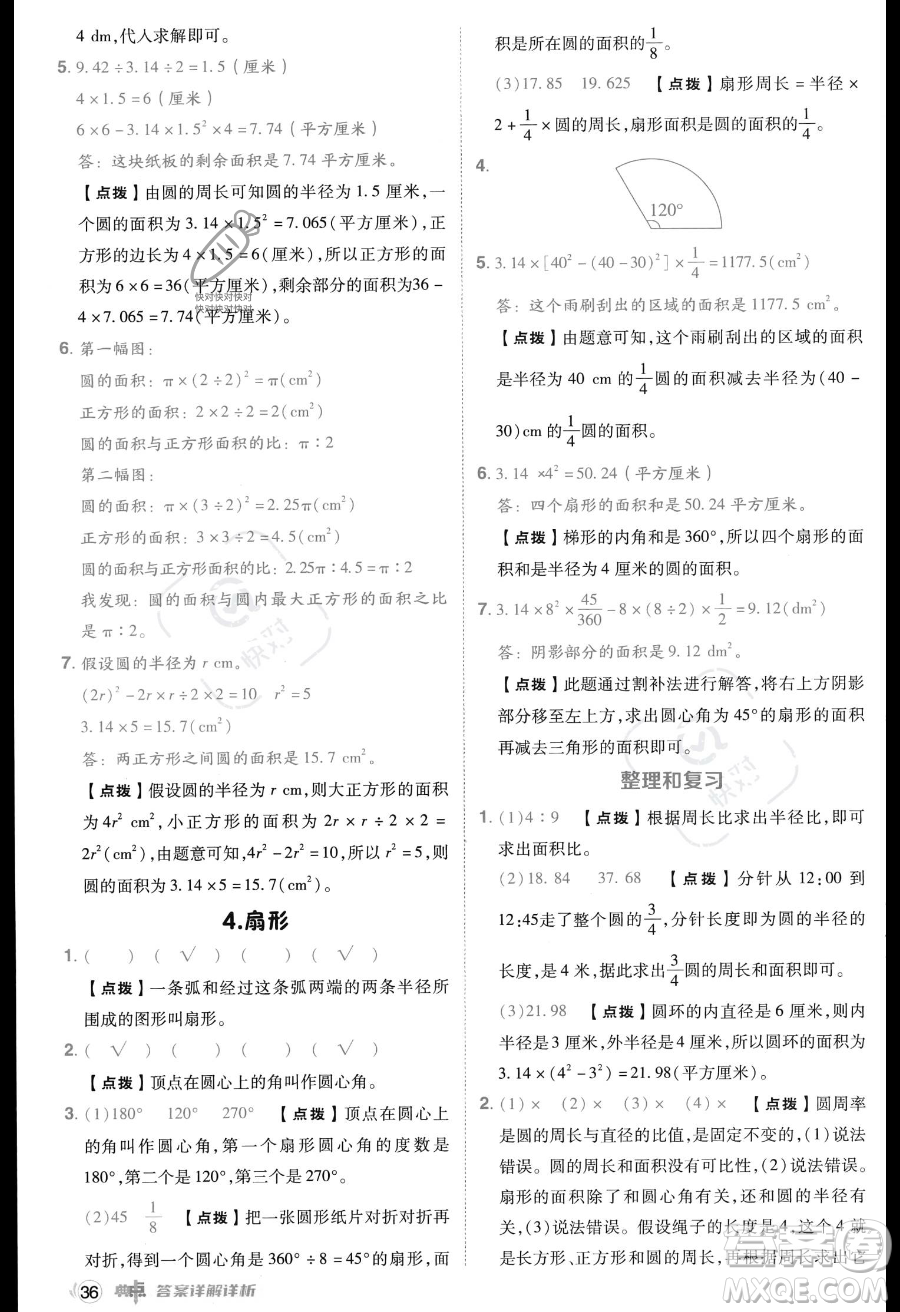 4 dm,代人求解即可。
5. 9.42÷3.14÷2=1.5(厘米)
4×1.5=6(厘米)
6×6-3.14×1.5²×4=7.74(平方厘米)
答:这块纸板的剩余面积是7.74平方厘米。
【点拨】由圆的周长可知圆的半径为1.5厘米,一
个圆的面积为3.14×1.5²=7.065(平方厘米),正
方形的边长为4×1.5=6(厘米),所以正方形的面积为
6×6=36(平方厘米),剩余部分的面积为36-
4×7.065=7.74(平方厘米)。
快对快对快对
快对快对快对
6. 第一幅图:
圆的面积:π×(2÷2)²=π(cm²)
正方形的面积:2×2÷2=2(cm²)
圆的面积与正方形面积的比:π∶2
第二幅图:
圆的面积:π×(3÷2)²=2.25π(cm²)
正方形的面积:3×3÷2=4.5(cm²)
圆的面积与正方形面积的比:2.25π∶4.5=π∶2
我发现:圆的面积与圆内最大正方形的面积之比
是π∶2。
7. 假设圆的半径为r cm。
(2r)²-2r×r÷2×2=10 r²=5
3.14×5=15.7(cm²)
答:两正方形之间圆的面积是15.7 cm²。
【点拨】假设圆的半径是r cm,则大正方形的面积
为4r² cm²,小正方形的面积为2r×r÷2×2=
2r²(cm²),由题意可知,4r²-2r²=10,所以r²=5,则
圆的面积为3.14×5=15.7(cm²)。
4.扇形
1. ( ) ( √ ) ( ) ( √ )
【点拨】一条弧和经过这条弧两端的两条半径所
围成的图形叫扇形。
2. ( √ ) ( ) ( ) ( √ )
【点拨】顶点在圆心上的角叫作圆心角。
3. (1)180° 120° 270° 【点拨】顶点在圆心上
的角叫作圆心角,第一个扇形圆心角的度数是
180°,第二个是120°,第三个是270°。
(2)45 1/8 【点拨】把一张圆形纸片对折对折再
对折,得到一个圆心角是360°÷8=45°的扇形,面
36 典中点 答案详解详析
积是所在圆的面积的1/8。
(3)17.85 19.625 【点拨】扇形周长=半径×
2+1/4×圆的周长,扇形面积=圆的面积×1/4。
4.
120°
5. 3.14×[40²-(40-30)²]×1/4=1177.5(cm²)
答:这个雨刷刮出的区域的面积是1177.5 cm²。
【点拨】由题意可知,这个雨刷刮出的区域的面积
是半径为40 cm的1/4圆的面积减去半径为(40-
30)cm的1/4圆的面积。
6. 3.14 ×4²=50.24(平方厘米)
答:四个扇形的面积和是50.24平方厘米。
【点拨】梯形的内角和是360°,所以四个扇形的面
积和是半径为4厘米的圆的面积。
7. 3.14×8²×45/360-8×(8÷2)×1/2=9.12(dm²)
答:阴影部分的面积是9.12 dm²。
【点拨】此题通过割补法进行解答,将右上方阴影
部分移至左上方,求出圆心角为45°的扇形的面积
再减去三角形的面积即可。
整理和复习
1. (1)4∶9 【点拨】根据周长比求出半径比,即可
求出面积比。
(2)18.84 37.68 【点拨】分针从12:00到
12:45走了整个圆的3/4,分针长度即为圆的半径的
长度,是4米,因此求出3/4圆的周长和面积即可。
(3)21.98 【点拨】圆环的内直径是6厘米,所以
内半径是3厘米,外半径是4厘米,所以圆环的面积是
3.14×(4²-3²)=21.98(平方厘米)。
2. (1)× (2)× (3)× (4)× 【点拨】圆周率
是圆的周长与直径的比值,是固定不变的,(1)说法
错误。圆的周长和面积没有可比性,(2)说法错误。
扇形的面积除了和圆心角有关,还和圆的半径有
关,(3)说法错误。假设绳子的长度是4,无论4是
就是长方形、正方形和圆的周长,再根据周长求出它